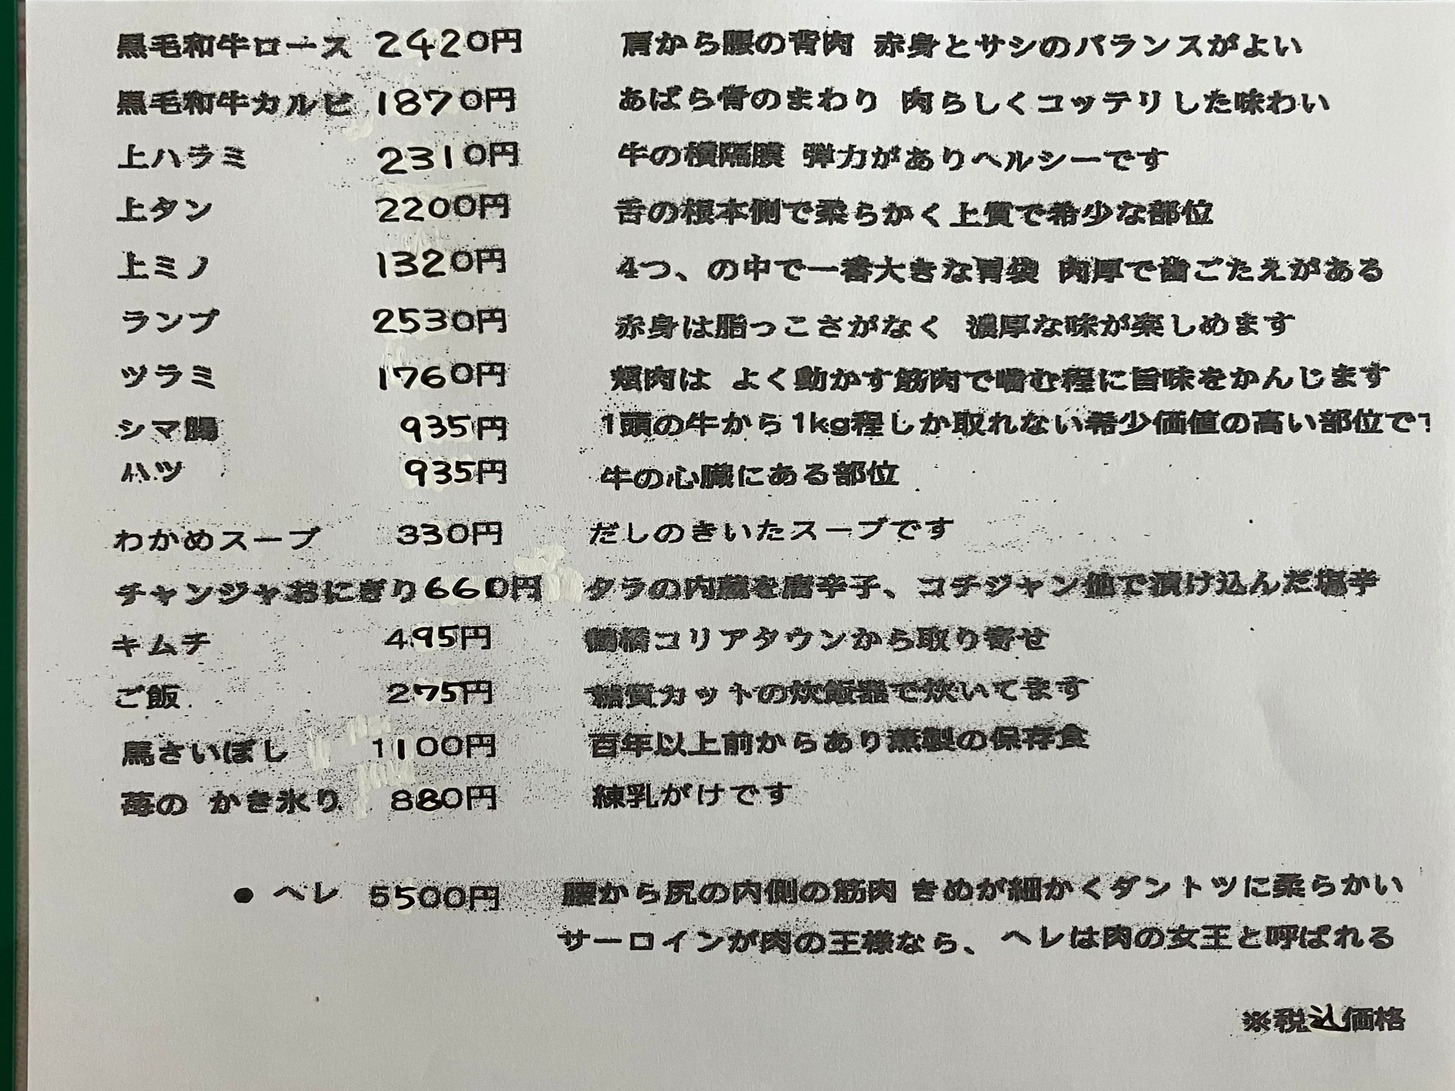 黒毛和牛ロース 2420円 肩から腰の背肉 赤身とサシのバランスがよい
黒毛和牛カルビ 1870円 あばら骨のまわり 肉らしくコッテリした味わい
上ハラミ 2310円 牛の横隔膜 弾力がありヘルシーです
上タン 2200円 舌の根本側で柔らかく上質で希少な部位
上ミノ 1320円 4つ、の中で一番大きな胃袋 肉厚で歯ごたえがある
ランプ 2530円 赤身は脂っこさがなく 濃厚な味が楽しめます
ツラミ 1760円 頬肉は よく動かす筋肉で噛む程に旨味をかんじます
シマ腸 935円 1頭の牛から1kg程しか取れない希少価値の高い部位で
ハツ 935円 牛の心臓にある部位
わかめスープ 330円 だしのきいたスープです
チャンジャおにぎり660円 タラの内蔵を唐辛子、コチジャン他で漬け込んだ塩辛
キムチ 495円 鶴橋コリアタウンから取り寄せ
ご飯 275円 糖質カットの炊飯器で炊いてます
馬さいぼし 1100円 百年以上前からあり薫製の保存食
苺の かき氷り 880円 練乳がけです
● ヘレ 5500円 腰から尻の内側の筋肉 きめが細かくダントツに柔らかい
サーロインが肉の王様なら、 ヘレは肉の女王と呼ばれる
※税込価格